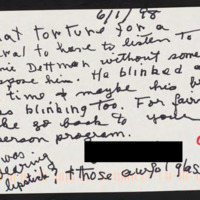 6/1/98
at torture for a
ral to have to listen to
ie Dettman without some
pose him. He blinked a
time & maybe his b
s blinking too. For fair
he go back to your
erson program.
was
earing
lipstick & those awful glass